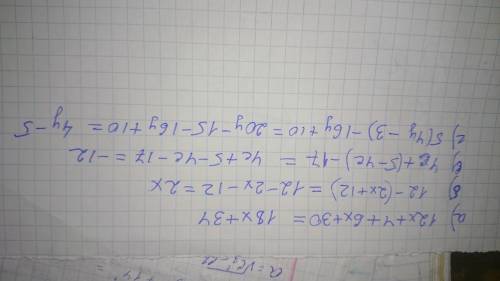 а) 12x+4+6x+30 = 18x+34
б) 12-(2x+12) = 12-2x-12 = 2x
в) 4c+(5-4c)-17 = 4c+5-4c-17 = -12
г) 5(4y-3)-16y+10 = 20y-15-16y+10 = 4y-5